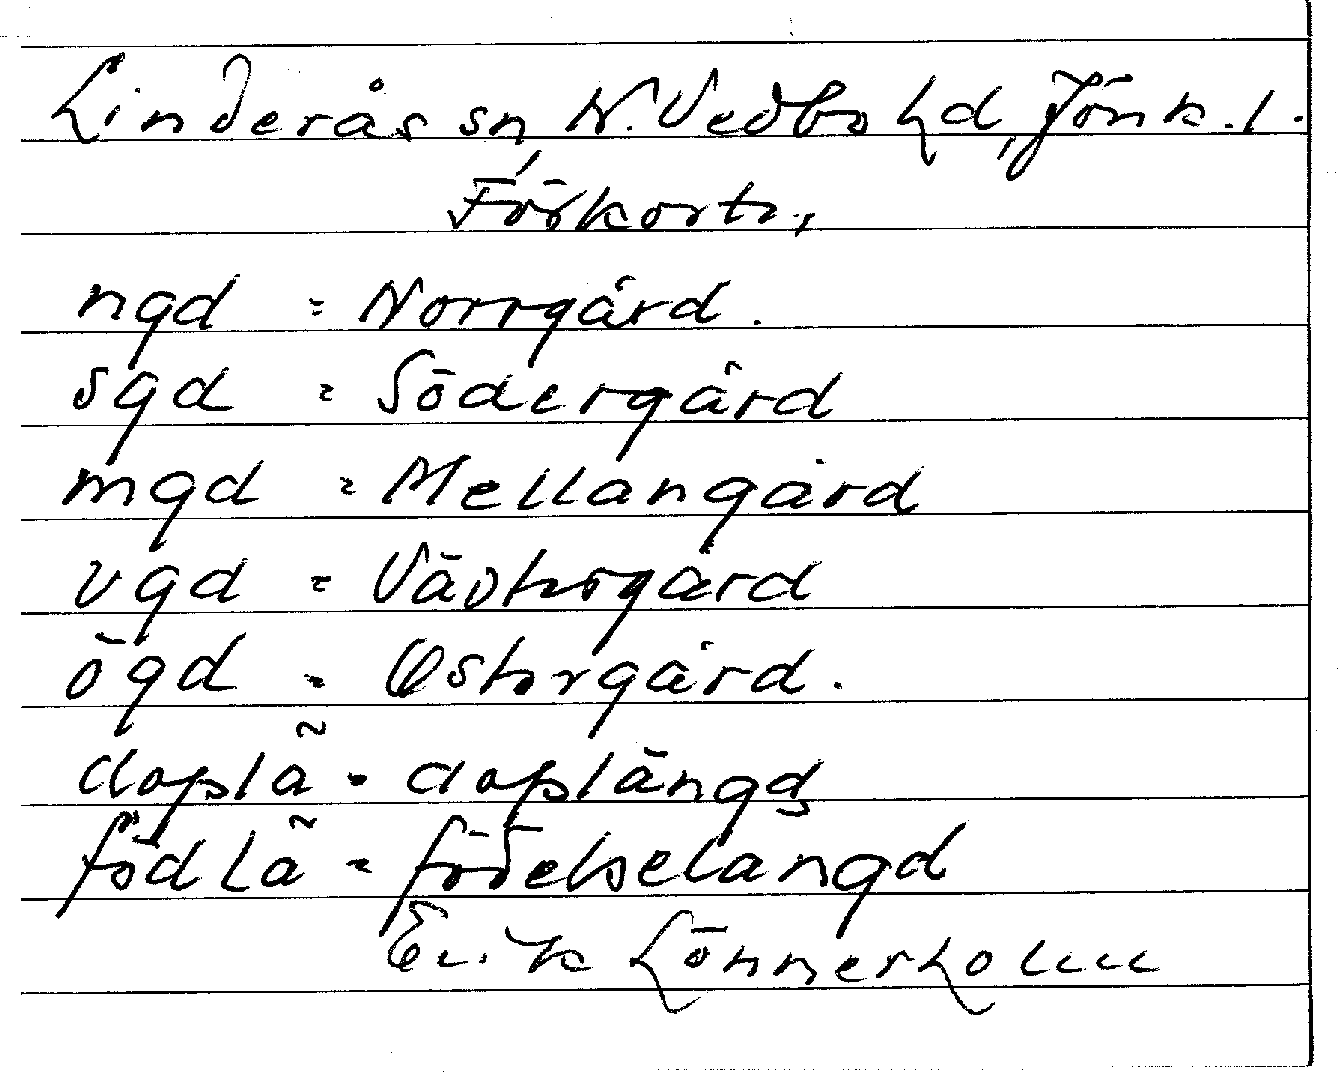 Linderås sn, N. Vedbo hd, Jönk. l.
Förkortn.
ngd = Norrgård.
sgd = Södergård
mgd = Mellangård
vgd = Västergård
ögd = Östergård.
doplä = doplängd
födlä = födelselängd
Erik Lönnerholm